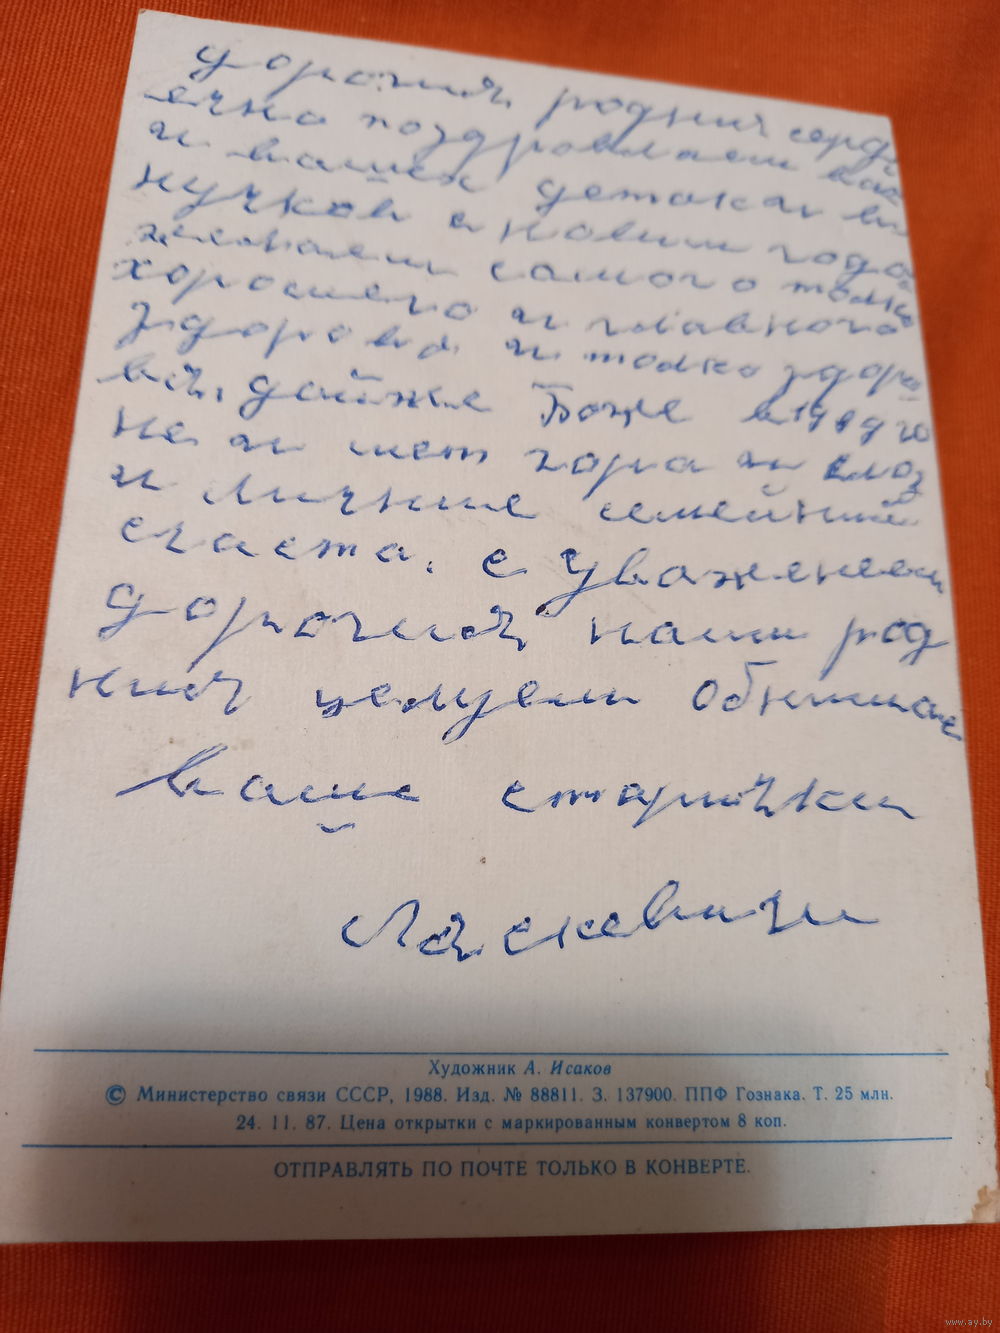 дорогия родния серд
ечно поздровлаем вас
и вашех детокаи вн
нучков с новим годо
желоаем самого толко
хорошего и главного
здоровя и толко здоро
вя, дайже Боже в 1989 го
не и шет гора и слоз
и личние семейний
счаста. с уваженеем
дорогия наши род
ния целуем обнимае
ваше старички
Ласкевичи
Художник А. Исаков
© Министерство связи СССР, 1988. Изд. № 88811. З. 137900. ППФ Гознака. Т. 25 млн.
24. 11. 87. Цена открытки с маркированным конвертом 8 коп.
ОТПРАВЛЯТЬ ПО ПОЧТЕ ТОЛЬКО В КОНВЕРТЕ.
www.ay.by